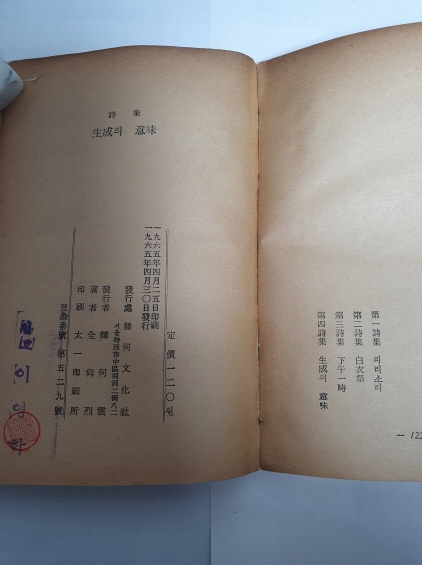 詩集
生成의 意味
定價 一二〇원
一九六五年四月二五日印刷
一九六五年四月三〇日發行
發行處 無何文化社
서울特別市中區田四二街八二
發行者 韓何雲
著者 全尙烈
印刷 太一印刷所
登錄番號 第五二九號
第一詩集 피리소리
第二詩集 白衣祭
第三詩集 下午一時
第四詩集 生成의 意味
— 122